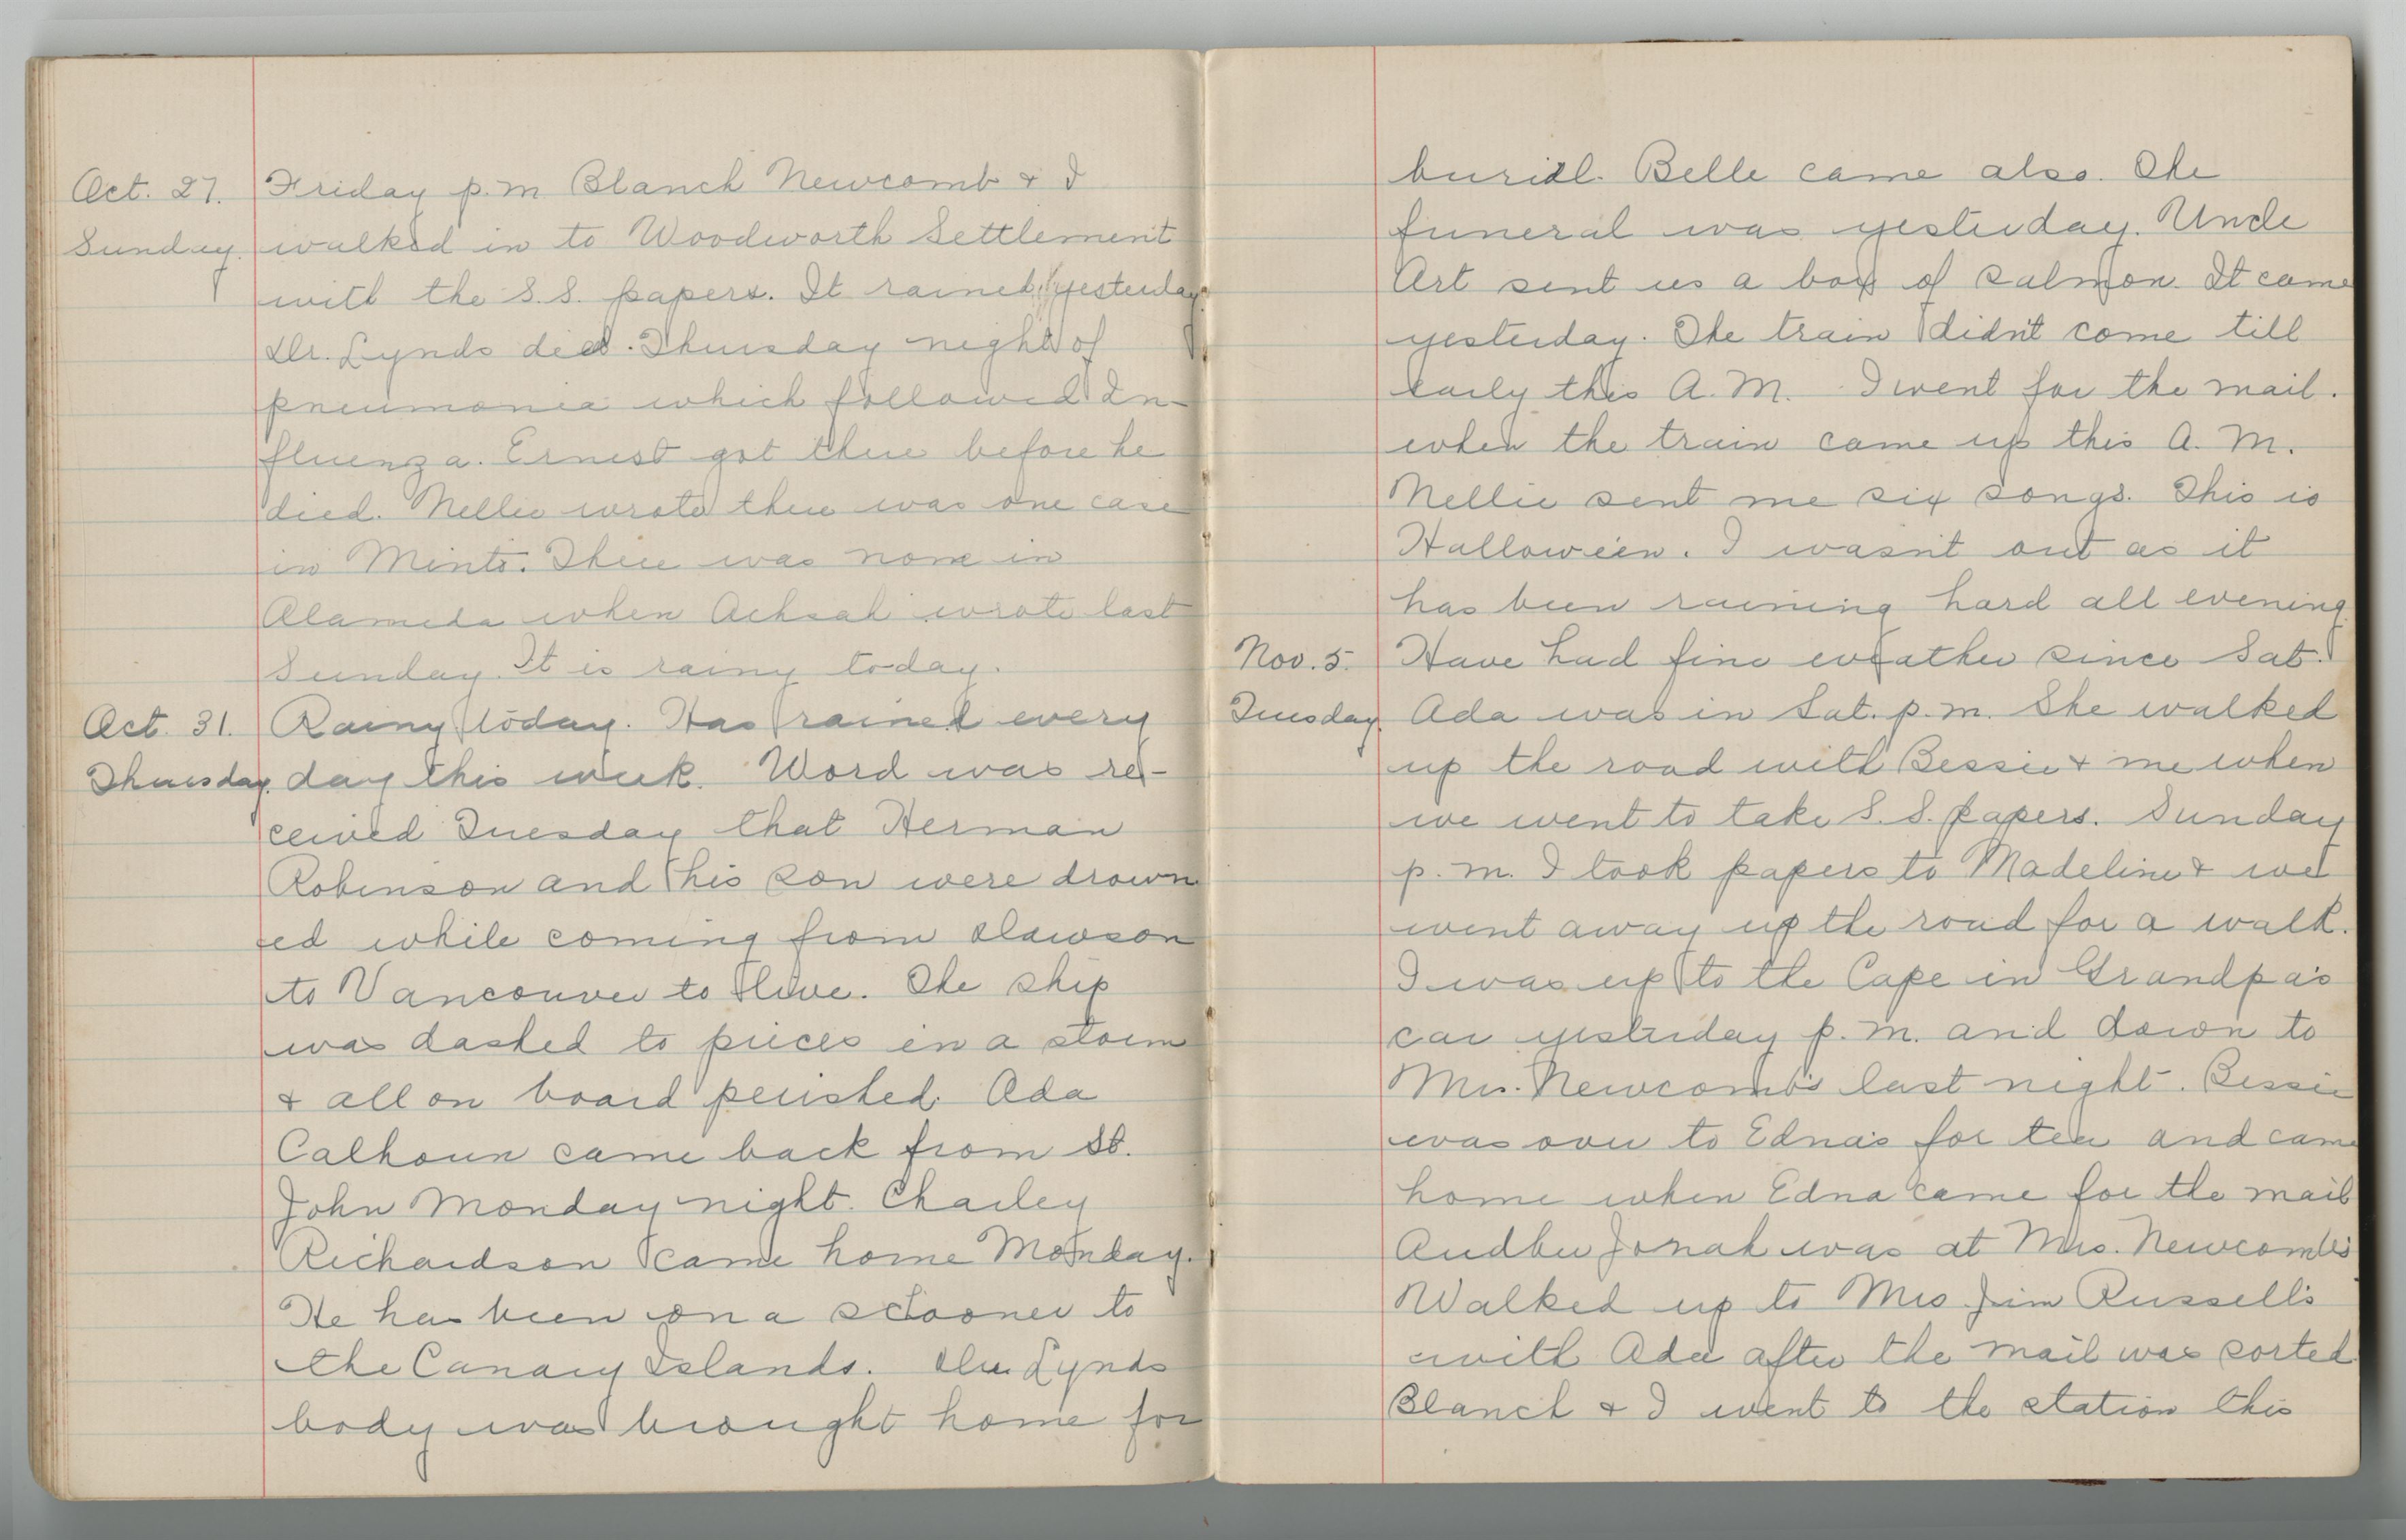 Oct. 27. Friday p.m Blanch Newcomb & I
Sunday. walked in to Woodworth Settlement
with the S.S. papers. It rained yesterday.
Dr. Lynds died. Thursday night of
pneumonia which followed In-
fluenza. Ernest got there before he
died. Nellie wrote there was one case
in Minto. There was none in
Alameda when Achsah wrote last
Sunday. It is rainy today.
Oct. 31. Rainy today. Has rained every
Thursday. day this week. Word was re-
ceived Tuesday that Herman
Robinson and his son were drown
ed while coming from Dawson
to Vancouver to live. The ship
was dashed to pieces in a storm
& all on board perished. Ada
Calhoun came back from St.
John Monday night. Charley
Richardson came home Monday.
He has been on a schooner to
the Canary Islands. Dr. Lynds
body was brought home for
burial. Belle came also. The
funeral was yesterday. Uncle
Art sent us a box of salmon. It came
yesterday. The train didn't come till
early this A.M. I went for the mail.
when the train came up this A.M.
Nellie sent me six songs. This is
Hallowe'en. I wasn't out as it
has been raining hard all evening.
Nov. 5. Have had fine weather since Sat.
Tuesday. Ada was in Sat. p.m. She walked
up the road with Bessie & me when
we went to take S.S. papers. Sunday
p.m. I took papers to Madeline & we
went away up the road for a walk.
I was up to the Cape in Grandpa's
car yesterday p.m. and down to
Mrs. Newcomb's last night. Bessie
was over to Edna's for tea and came
home when Edna came for the mail
Jonah was at Mrs. Newcomb's
Walked up to Mrs Jim Russell's
with Ada after the mail was sorted
Blanch & I went to the station this